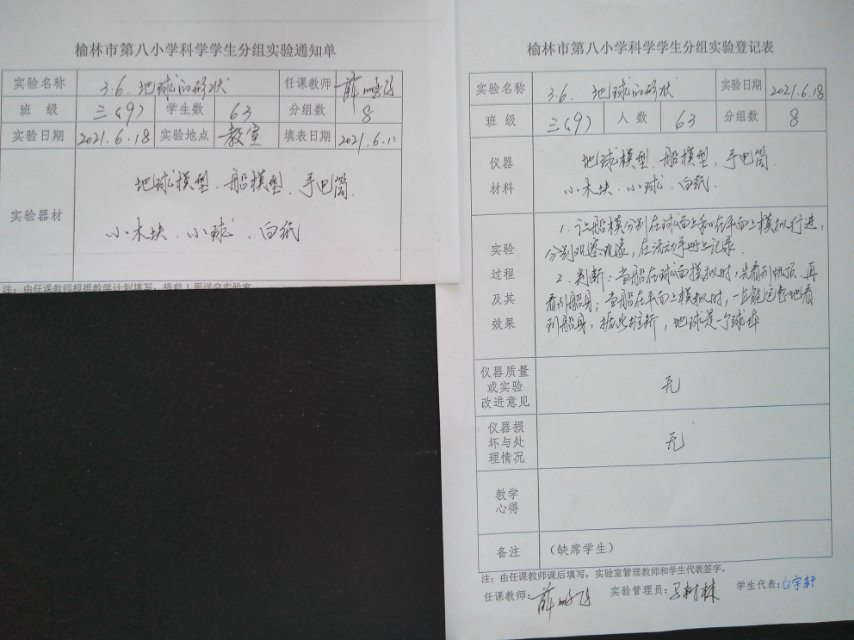 榆林市第八小学科学学生分组实验通知单
实验名称 3.6. 地球的形状 任课教师 薛鹏飞
班 级 三(9) 学生数 63 分组数 8
实验日期 2021.6.18 实验地点 教室 填表日期 2021.6.11
实验器材
地球模型、船模型、手电筒
小木块、小球、白纸
注:由任课教师根据教学计划填写,提前1周送交实验室
榆林市第八小学科学学生分组实验登记表
实验名称 3.6. 地球的形状 实验日期 2021.6.18
班 级 三(9) 人 数 63 分组数 8
仪器 地球模型、船模型、手电筒
材料 小木块、小球、白纸.
1.让船模分别在球面上和在平面上模拟行进,
实验 分别观察现象,在活动手册上记录.
过程 2.判断:当船在球面模拟时,先看到帆顶,再
及其 看到船身;当船在平面上模拟时,一直能完整地看
效果 到船身,据此推断,地球是一个球体
仪器质量
或实验 无
改进意见
仪器损
坏与处 无
理情况
教学
心得
备注 (缺席学生)
注:由任课教师课后填写,实验室管理教师和学生代表签字。
任课教师:薛鹏飞 实验管理员:马树林 学生代表:白宇轩